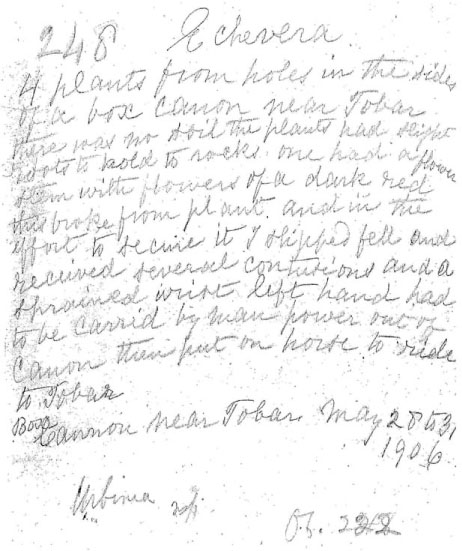 248 Echevera
4 plants from holes in the sides
of a box Canon near Tobar
there was no soil the plants had slight
roots to hold to rocks. one had a flower
stem with flowers of a dark red
this broke from plant. and in the
effort to secure it I slipped fell and
received several contusions and a
sprained wrist left hand had
to be carrid by man power out of
Canon then put on horse to ride
to Tobar
Box
Cannon near Tobar. May 28 to 31
1906
Urbinia